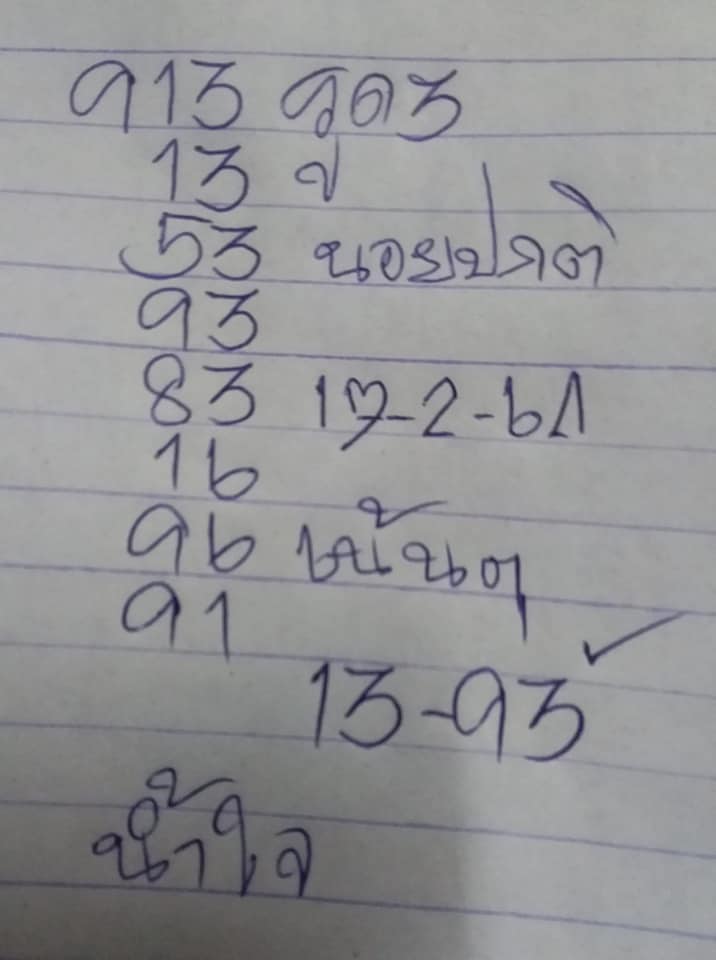 913 รูด3
13
53 นอยปกติ
93
83 17-2-61
16
96 เน้นๆ
91
13-93
น้ำใจ